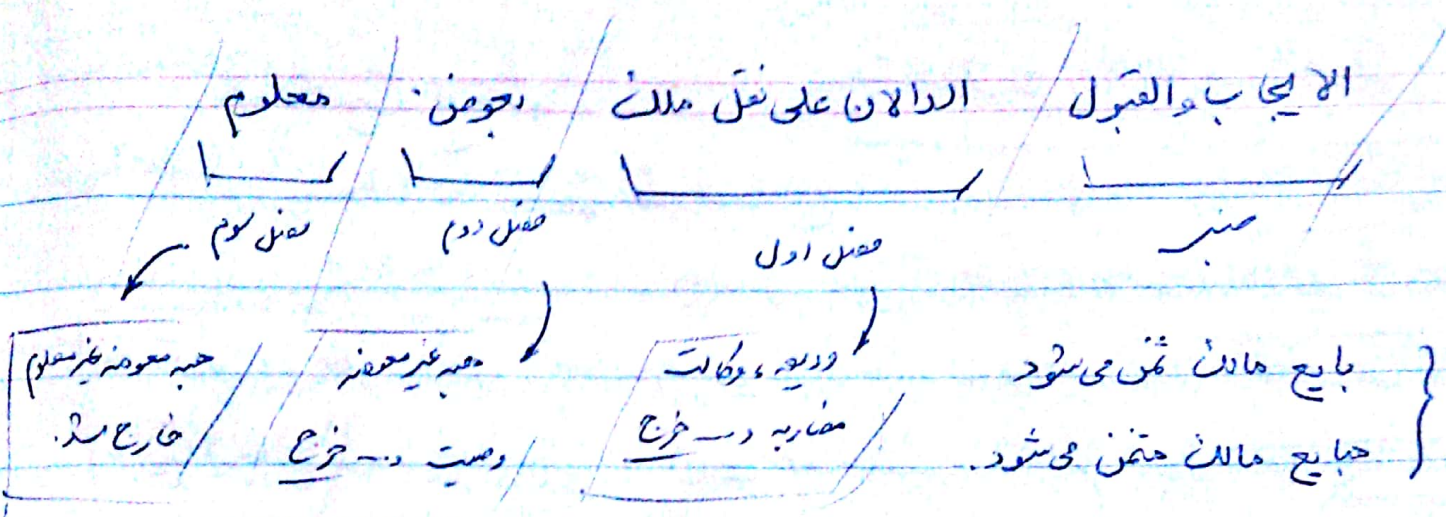 الایجاب والقبول / الدالان علی نقل ملک / بعوض / معلوم
جنس
فصل اول
فصل دوم
فصل سوم
بایع مالک ثمن می‌شود
مبایع مالک مثمن می‌شود.
ودیعه، وکالت
مضاربه و... خرج
هبه غیر معوضه
وصیت و... خرج
هبه معوضه غیر معلوم
خارج شد.